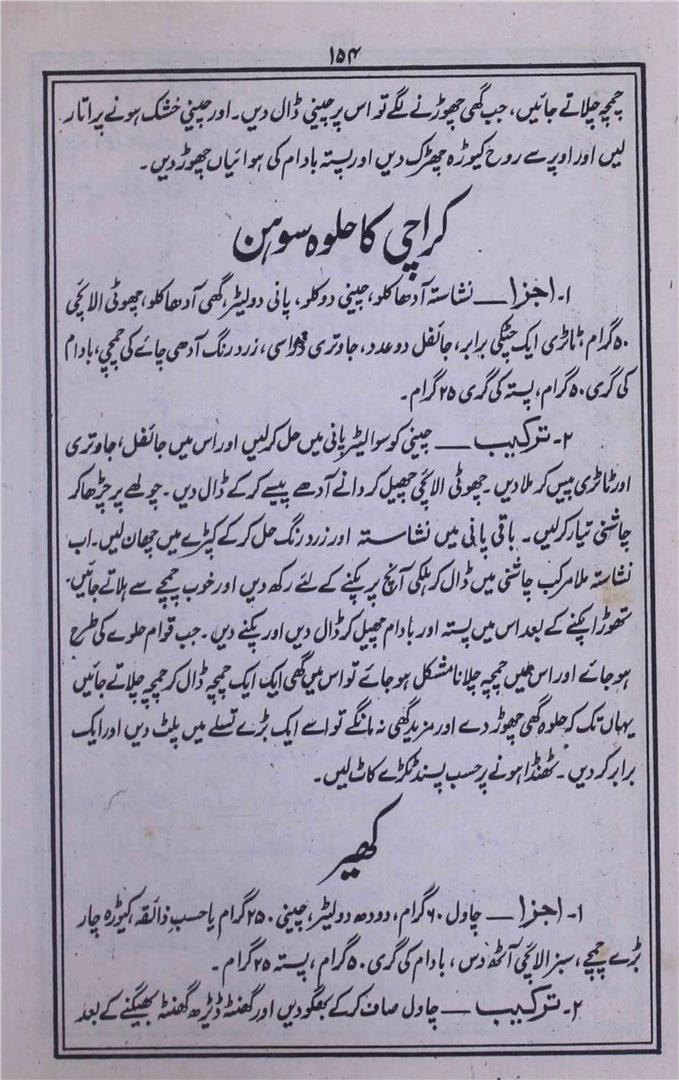 ۱۵۴
چمچہ چلاتے جائیں، جب گھی چھوڑنے لگے تو اس پر چینی ڈال دیں۔ اور چینی خشک ہونے پر اتار
لیں اور اوپر سے روح کیوڑہ چھڑک دیں اور پستہ بادام کی ہوائیاں چھوڑ دیں۔
کراچی کا حلوہ سوہن
۱۔ اجزا ــــ نشاستہ آدھا کلو، چینی دو کلو، پانی دو لیٹر، گھی آدھا کلو، چھوٹی الائچی
۵۰ گرام، ٹاٹری ایک چٹکی برابر، جائفل دو عدد، جاوتری ذرا سی، زرد رنگ آدھی چائے کی چمچی، بادام
کی گری ۵۰ گرام، پستہ کی گری ۲۵ گرام۔
۲۔ ترکیب ــــ چینی کو سوا لیٹر پانی میں حل کر لیں اور اس میں جائفل، جاوتری
اور ٹاٹری پیس کر ملا دیں۔ چھوٹی الائچی چھیل کر دانے آدھے پیسے کر کے ڈال دیں۔ چولھے پر چڑھا کر
چاشنی تیار کر لیں۔ باقی پانی میں نشاستہ اور زرد رنگ حل کر کے کپڑے میں چھان لیں۔ اب
نشاستہ ملا مرکب چاشنی میں ڈال کر ہلکی آنچ پر پکنے کے لئے رکھ دیں اور خوب چمچے سے ہلاتے جائیں۔
تھوڑا پکنے کے بعد اس میں پستہ اور بادام چھیل کر ڈال دیں اور پکنے دیں۔ جب قوام حلوے کی طرح
ہو جائے اور اس میں چمچہ چلانا مشکل ہو جائے تو اس میں گھی ایک ایک چمچہ ڈال کر چمچہ چلاتے جائیں
یہاں تک کہ حلوہ گھی چھوڑ دے اور مزید گھی نہ مانگے تو اسے ایک بڑے تسلے میں پلٹ دیں اور ایک
برابر کر دیں۔ ٹھنڈا ہونے پر حسب پسند ٹکڑے کاٹ لیں۔
کھیر
۱۔ اجزا ــــ چاول ۶۰ گرام، دودھ دو لیٹر، چینی ۲۵۰ گرام یا حسبِ ذائقہ، کیوڑہ چار
بڑے چمچے، سبز الائچی آٹھ دس، بادام کی گری ۵۰ گرام، پستہ ۲۵ گرام۔
۲۔ ترکیب ــــ چاول صاف کر کے بھگو دیں اور گھنٹہ ڈیڑھ گھنٹہ بھیگنے کے بعد